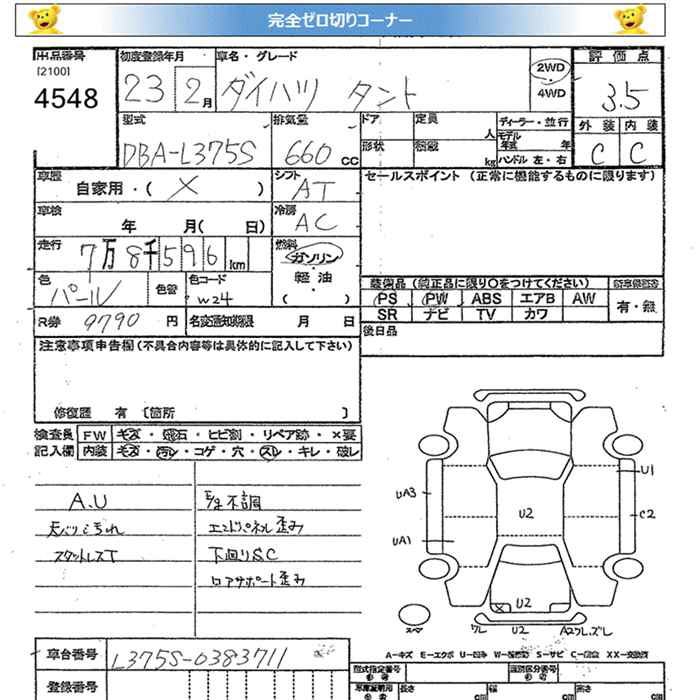 完全ゼロ切りコーナー
出品番号
[2100]
4548
初度登録年月
23 2月
車名・グレード
ダイハツ タント
2WD
4WD
評価点
3.5
外装 内装
C C
型式
DBA-L375S
排気量
660 cc
ドア
形状
定員
人
kg
ディーラー・並行
モデル年式 年
ハンドル 左・右
車歴
自家用・( × )
シフト
AT
セールスポイント (正常に機能するものに限ります)
車検
年 月( 日)
冷房
AC
走行
7万8千596 km
燃料
ガソリン
軽油
( )
色
パール
色替
色コード
W24
装備品 (純正品に限り○をつけてください)
PS PW ABS エアB AW
SR ナビ TV カワ
有・無
R券 9790 円
名変通知期限 月 日
後日品
注意事項申告欄 (不具合内容等は具体的に記入して下さい)
修復歴 有 〔箇所 〕
検査員
記入欄
FW キズ・飛石・ヒビ割・リペア跡・×要
内装 キズ・汚レ・コゲ・穴・スレ・キレ・破レ
A.U
天バリ汚れ
スタットレスT
不調
エンドパネル歪み
下廻りS.C
ロアサポート歪み
U1
UA3
C2
U2
UA1
U2
スペア
ワレ U2 A2ワレ.ズレ
A-キズ E-エクボ U-凹み W-波 S-サビ C-腐食 XX-交換済
車台番号 L375S-0383711
登録番号
型式指定番号
類別区分番号
長さ
幅
高さ